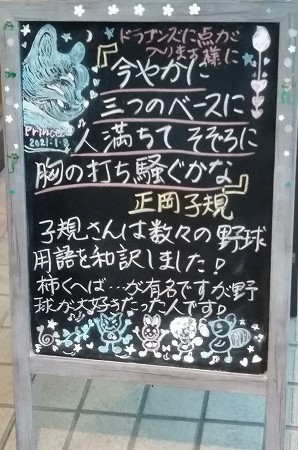 ドラゴンズに点が
へります様に
『今やかに
三つのベースに
人満ちて そぞろに
胸の打ち騒ぐかな』
正岡子規
Princess
2021.1.8
子規さんは数々の野球
用語を和訳しました♪
柿くへば…が有名ですが野
球が大好きだった人です♪